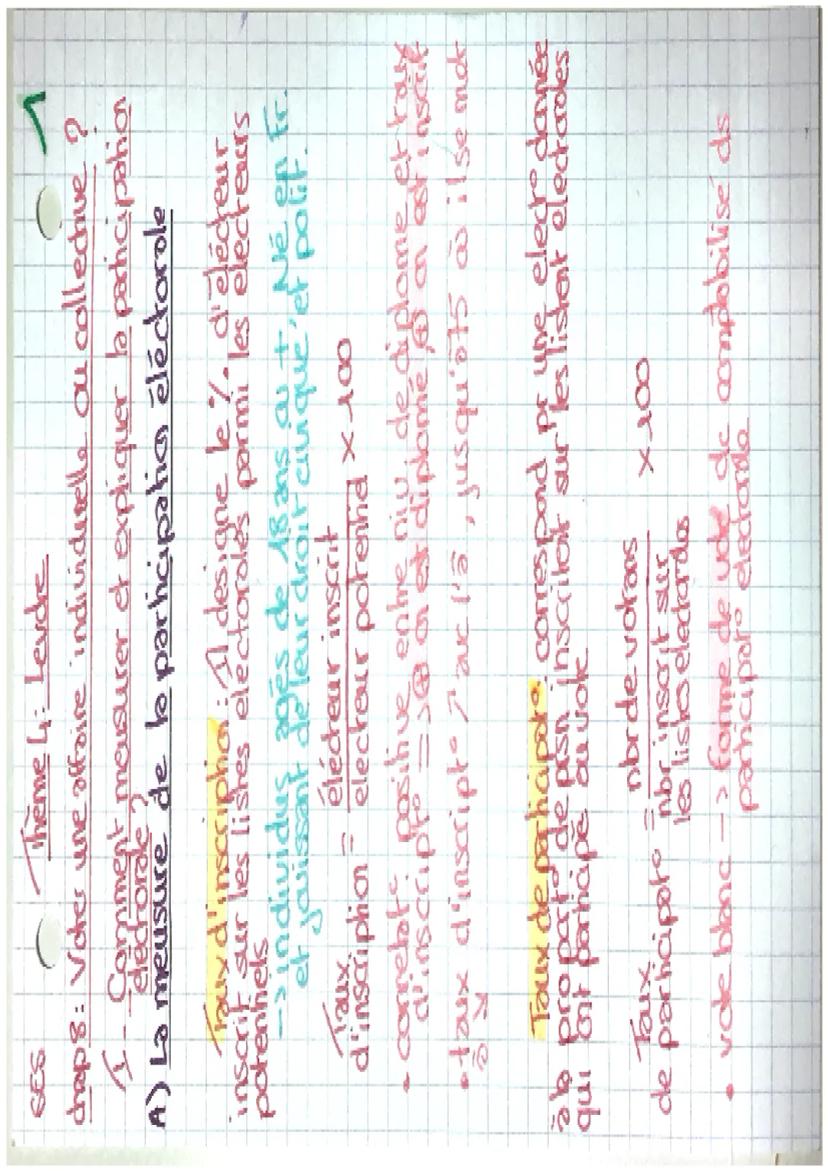 SES Thème 4: Levote 1
chap 8: Voter une affaire individuelle ou collective ?
I - Comment meusurer et expliquer la participation
éléctorale ?
A) La meusure de la participatio éléctorale
Taux d'inscriptio: Il designe le % d'élécteur
inscrit sur les listes électorales parmi les électeurs
potentiels
-> individus agés de 18 ans ou + Né en Fr.
et jouissant de leur droit civique et polit.
Taux d'inscription = élécteur inscrit / electeur potentiel x 100
• correlat° positive entre niv. de diplome et taux
d'inscript° => ⊕ on est diplomé, ⊕ on est inscrit
• taux d'inscript° ↗ avc l'â, jusqu'à 75 où il se met
à ↘
Taux de participato: correspond pr une elect° donnée
à la proport° de prsn inscritot sur les listent électorales
qui ont participé au vote
Taux de participat° = nbr de votans / nbr inscrit sur les listes electorales x 100
• vote blanc -> forme de vote dc comptabilisé ds
participat° électorale